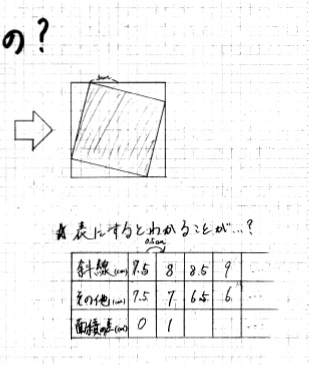 の?
★表にするとわかることが…?
0.5cm
斜線(cm) 7.5 8 8.5 9 …
その他(cm) 7.5 7 6.5 6 …
面積の差(cm) 0 1